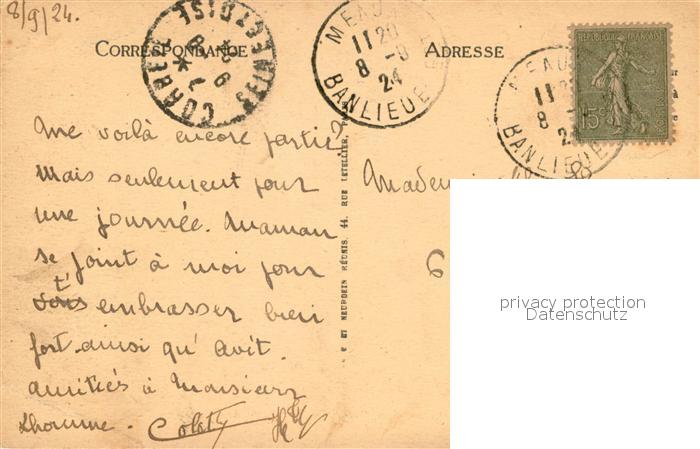 8/9/24.
CORRESPONDANCE
ADRESSE
CORBEIL
SEINE-ET-OISE
MEAUX
BANLIEUE
11 20
8 -9
24
MEAUX
BANLIEUE
11
8
24
REPUBLIQUE FRANÇAISE
15c
Me voilà encore partie?
Mais seulement pour
une journée. Maman
se joint à moi pour
t'
vous embrasser bien
fort ainsi qu'
amitiés à Monsieur
Lhomme.
ET NEURDEIN RÉUNIS. 44. RUE LETELLIER,
6
privacy protection
Datenschutz